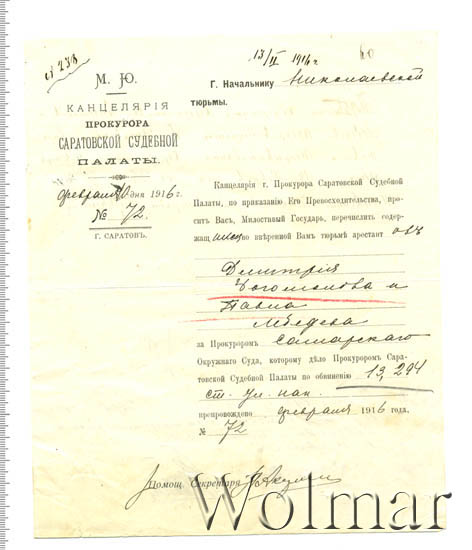 13/II 1916 г. 60
№ 238
М. Ю.
КАНЦЕЛЯРІЯ
ПРОКУРОРА
САРАТОВСКОЙ СУДЕБНОЙ
ПАЛАТЫ.
февраля 10 дня 1916 г.
№ 72.
Г. САРАТОВЪ.
Г. Начальнику Николаевской
тюрьмы.
Канцелярія г. Прокурора Саратовской Судебной
Палаты, по приказанію Его Превосходительства, про-
ситъ Васъ, Милостивый Государь, перечислить содер-
жащ во ввѣренной Вамъ тюрьмѣ арестант овъ
Дмитрія
Богомолова и
Павла
Лебедева
за Прокуроромъ Самарскаго
Окружнаго Суда, которому дѣло Прокуроромъ Сара-
товской Судебной Палаты по обвиненію 13, 294
ст. ул. нак.
препровождено февраля 1916 года,
№ 72
Помощ. Секретаря
Wolmar